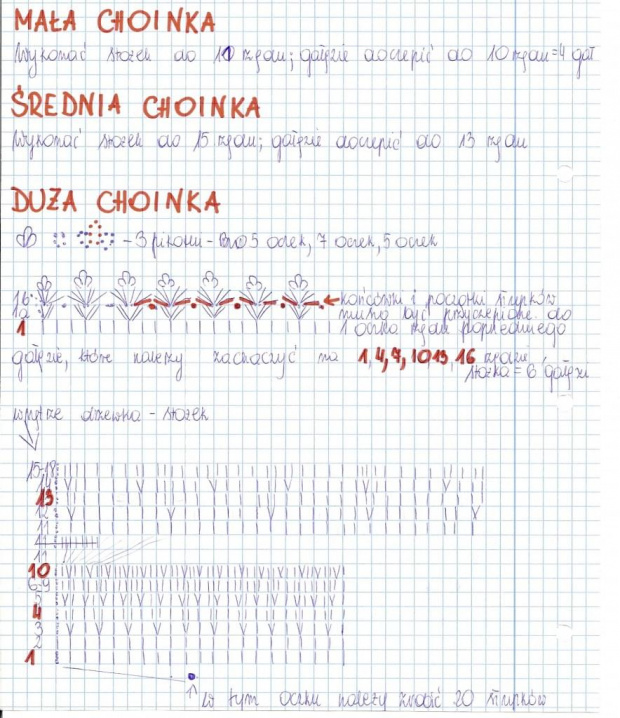 MAŁA CHOINKA
Wykonać stożek do 10 rzędu; gałęzie doczepić do 10 rzędu=4 gał
ŚREDNIA CHOINKA
Wykonać stożek do 15 rzędu; gałęzie doczepić do 13 rzędu
DUŻA CHOINKA
- 3 pikotki - 5 oczek, 7 oczek, 5 oczek
1b
1a
końcówki i początki słupków
muszą być przyczepione do
1
1 oczka rzędu poprzedniego
gałęzie, które należy zahaczyć na 1, 4, 7, 10 13, 16 rzędzie
stożka = 6 gałęzi
wnętrze drzewka - stożek
15-18
14
13
12
11
11
10
6-9
5
4
3
2
1
w tym oczku należy zrobić 20 słupków